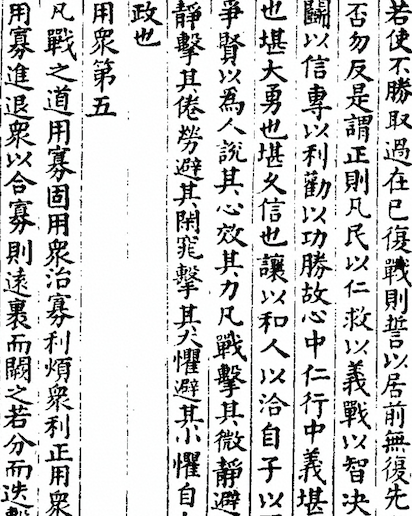 若使不勝取過在已復戰則誓以居前無復先
否勿反是謂正則凡民以仁救以義戰以智決
鬭以信專以利勸以功勝故心中仁行中義堪
也堪大勇也堪久信也讓以和人以洽自子以
爭賢以爲人說其心效其力凡戰擊其微靜避
靜擊其倦勞避其閑窕擊其大懼避其小懼自
政也
用衆第五
凡戰之道用寡固用衆治寡利煩衆利正用衆
用寡進退衆以合寡則遠裹而闕之若分而迭擊